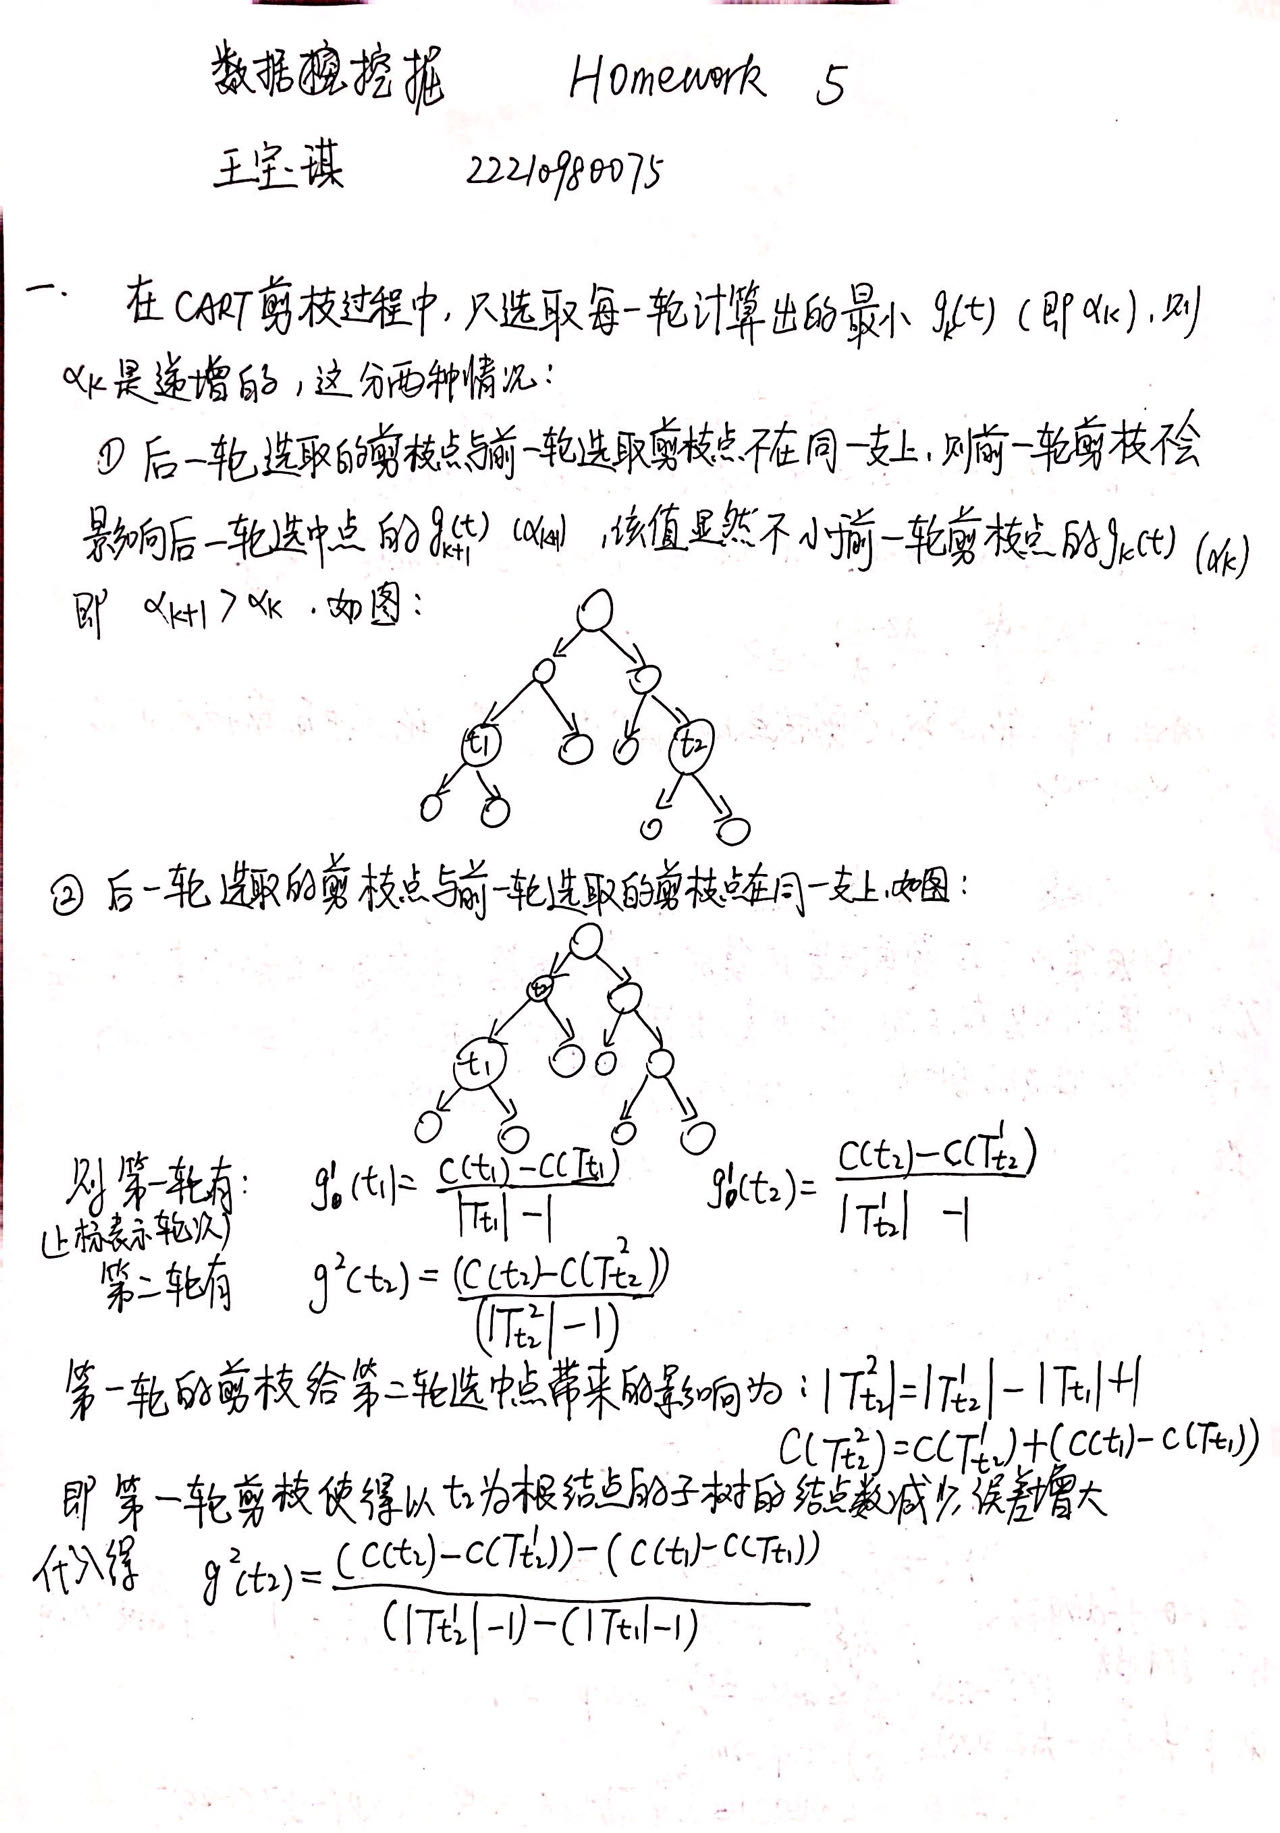 数据挖掘 Homework 5
王宝琪 22210980075
一. 在CART剪枝过程中,只选取每一轮计算出的最小 g_k(t) (即α_k),则
α_k是递增的,这分两种情况:
① 后一轮选取的剪枝点与前一轮选取剪枝点不在同一支上,则前一轮剪枝不会
影响后一轮选中点的g_{k+1}(t) (α_{k+1}),该值显然不小于前一轮剪枝点的g_k(t) (α_k)
即 α_{k+1} > α_k .如图:
t1 t2
② 后一轮选取的剪枝点与前一轮选取的剪枝点在同一支上,如图:
t2
t1
则第一轮有: g^1(t_1) = (C(t_1)-C(T_{t_1})) / (|T_{t_1}|-1) g^1(t_2) = (C(t_2)-C(T^1_{t_2})) / (|T^1_{t_2}|-1)
(上标表示轮次)
第二轮有 g^2(t_2) = (C(t_2)-C(T^2_{t_2})) / (|T^2_{t_2}|-1)
第一轮的剪枝给第二轮选中点带来的影响为: |T^2_{t_2}|=|T^1_{t_2}|-|T_{t_1}|+1
C(T^2_{t_2})=C(T^1_{t_2})+(C(t_1)-C(T_{t_1}))
即第一轮剪枝使得以t_2为根结点的子树的结点数减少,误差增大
代入得 g^2(t_2) = ((C(t_2)-C(T^1_{t_2}))-(C(t_1)-C(T_{t_1}))) / ((|T^1_{t_2}|-1)-(|T_{t_1}|-1))